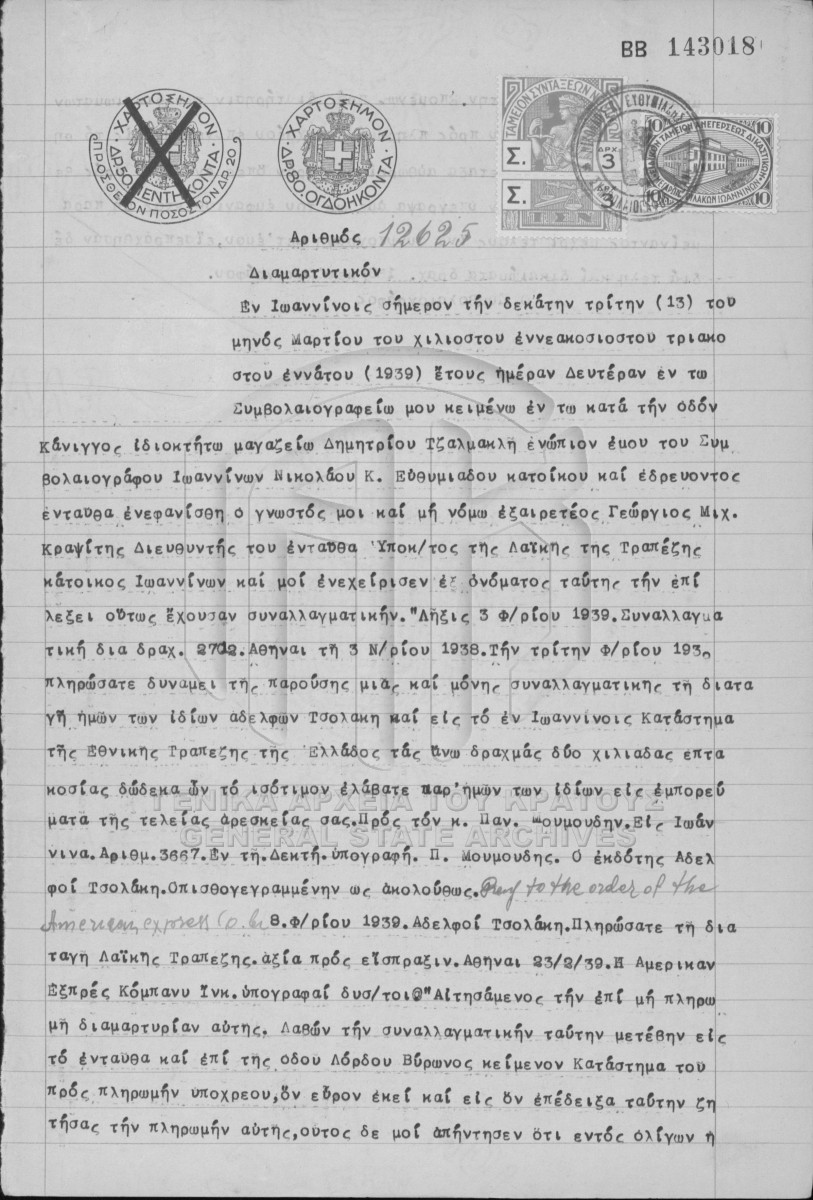 ΒΒ 143018
ΧΑΡΤΟΣΗΜΟΝ
ΔΡ.50.ΠΕΝΤΗΚΟΝΤΑ
ΠΡΟΣΘΕΤΟΝ ΠΟΣΟΣΤΟΝ ΔΡ. 20
ΧΑΡΤΟΣΗΜΟΝ
ΔΡ.80.ΟΓΔΟΗΚΟΝΤΑ
ΤΑΜΕΙΟΝ ΣΥΝΤΑΞΕΩΝ
Σ.
Σ.
ΔΡΧ
3
3
10 10
10 10
Αριθμός 12625
Διαμαρτυτικόν
Εν Ιωαννίνοις σήμερον τήν δεκάτην τρίτην (13) του
μηνός Μαρτίου του χιλιοστου έννεακοσιοστου τριακο
στου έννάτου (1939) ἔτους ἡμέραν Δευτέραν εν τω
Συμβολαιογραφείω μου κειμένω έν τω κατά τήν όδόν
Κάνιγγος ἰδιοκτήτω μαγαζείω Δημητρίου Τζαλμακλῆ ενώπιον έμου του Συμ
βολαιογράφου Ιωαννίνων Νικολάου Κ. Εύθυμιαδου κατοίκου καί ἑδρευοντος
ένταυθα ένεφανίσθη ὁ γνωστός μοι καί μή νόμω έξαιρετέος Γεώργιος Μιχ.
Κραψίτης Διευθυντής του ένταυθα Ὑποκ/τος τῆς Λαϊκης της Τραπέζης
κάτοικος Ιωαννίνων καί μοί ένεχείρισεν έξ όνόματος ταύτης τήν έπί
λεξει οὕτως ἔχουσαν συναλλαγματικήν."Λῆξις 3 Φ/ρίου 1939.Συναλλαγμα
τική δια δραχ. 2702.Αθηναι τῆ 3 Ν/ρίου 1938.Τήν τρίτην Φ/ρίου 193
πληρώσατε δυνάμει τῆς παρούσης μιας καί μόνης συναλλαγματικης τῆ διατα
γῆ ἡμών των ίδίων άδελφών Τσολακη καί εἰς τό έν Ιωαννίνοις Κατάστημα
τῆς Εθνικῆς Τραπεζης τῆς Ἑλλάδος τάς ἄνω δραχμάς δύο χιλιαδας επτα
κοσίας δώδεκα ὧν τό ισότιμον ἐλάβατε παρ'ἡμών των ίδίων είς έμπορεύ
ματα τῆς τελείας άρεσκείας σας.Πρός τόν κ. Παν. Μουμουδην.Είς Ιωάν
νινα.Αριθμ.3667.Εν τῆ.Δεκτή.ὑπογραφή. Π. Μουμουδης. Ο έκδότης Αδελ
φοί Τσολάκη.Οπισθογεγραμμένην ως άκολούθως. Pay to the order of the
American express Co. 8.Φ/ρίου 1939.Αδελφοί Τσολάκη.Πληρώσατε τῆ δια
ταγῆ Λαϊκῆς Τραπεζης.άξία πρός εἴσπραξιν.Αθηναι 23/2/39.Η Αμερικαν
Εξπρές Κόμπανυ Ίνκ.ὑπογραφαί δυσ/τοι" Αίτησάμενος τήν έπί μή πληρω
μῆ διαμαρτυρίαν αύτης. Λαβών τήν συναλλαγματικήν ταύτην μετέβην είς
τό ένταυθα καί έπί τῆς όδου Λόρδου Βύρωνος κείμενον Κατάστημα του
πρός πληρωμήν υποχρεου,ὅν εὗρον έκεί καί είς ὅν έπέδειξα ταύτην ζη
τήσας τήν πληρωμήν αύτῆς,ουτος δε μοί άπήντησεν ὅτι εντός όλίγων ἡ
ΓΕΝΙΚΑ ΑΡΧΕΙΑ ΤΟΥ ΚΡΑΤΟΥΣ
GENERAL STATE ARCHIVES